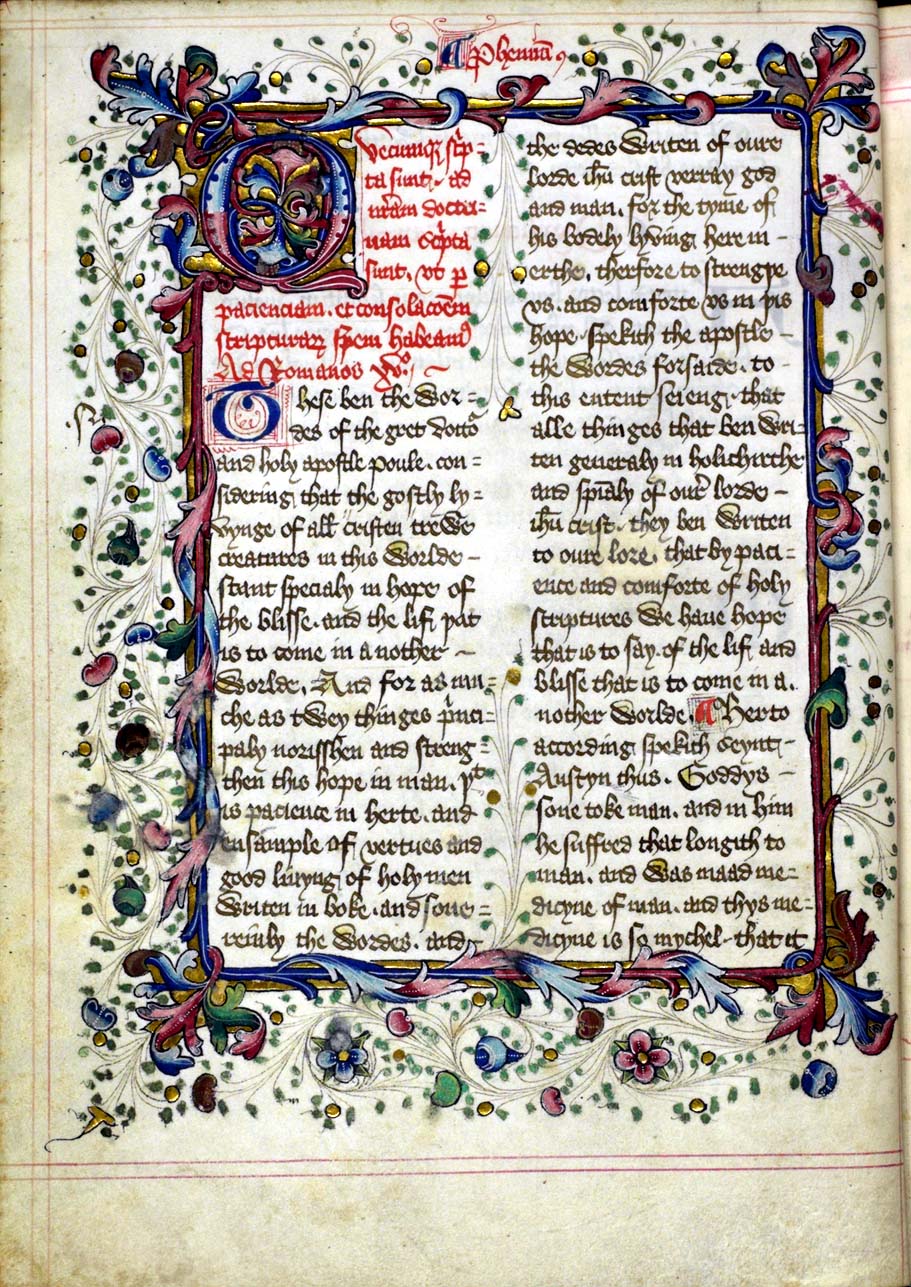 ¶ Phemiū
Quecumqȝ sc̄p-
ta sunt . ad
nr̄am doctri-
nam sc̄pta
sunt . vt ꝑ
pacienciam . et consolacōem
scripturarꝫ spem habeamꝰ
Ad Romanos xvº
These ben the wor-
des of the gret docto᷑
and holy apostle poule . con-
sidering that the gostly ly-
vynge of all cristen trewe
creatures in this worlde -
stant specialy in hope of
the blisse . and the lif þat
is to come in a nother
worlde . And for as mu-
che as twey thinges p̄nci-
paly norisshen and streng-
then this hope in man . yt
is pacience in herte . and
ensample of vertues and
good liuyng of holy men
writen in boke . and soue-
reinly the wordes . and
the dedes writen of oure
lorde ih̄u crist verray god
and man . for the tyme of
his bodely lyving here in -
erthe . therfore to strengþe
vs . and comforte vs in þis
hope . spekith the apostle -
the wordes forsaide . to -
this entent seieng . that
alle thinges that ben wri-
ten generaly in holichirche
and sp̄ialy of our᷑ lorde -
ih̄u crist . they ben writen
to oure lore . that by paci-
ence and comforte of holy
scriptures we have hope
that is to say . of the lif and
blisse that is to come in a .
nother worlde . ¶ Herto
according spekith seynt -
Austyn thus . Goddys -
sone toke man . and in him
he suffred that longith to
man . and was maad me-
dicyne of man . and thys me-
dicyne is so mychel . that it